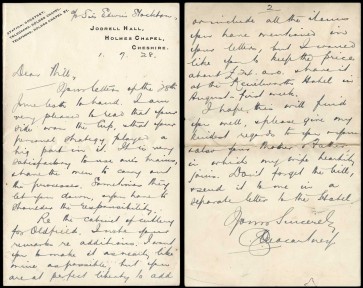 Sir Edwin Stockton.
JODRELL HALL,
HOLMES CHAPEL,
CHESHIRE.
1. 9. 28.
Dear Bill,
Your letter of the 28th
June last to hand. I am
very pleased to read that your
side won the Cup, & that your
personal strategy played a
big part in it. It is very
satisfactory to use one's brains,
& have the men to carry out
the processes. Sometimes they
let you down, & you have to
shoulder the responsibility.
Re the cabinet of cutlery
for Oldfield, I note your
remarks re additions. I want
you to make it as nearly like
mine as possible, but you
are at perfect liberty to add
2
or include all the items
you have mentioned in
your letter, but I would
like you to keep the price
about
at the Kenilworth Hotel in
August first week.
I hope this will find
you well, & please give my
kindest regards to you & yours
also your Mother & Father
in which my wife heartily
joins. Don't forget the bill,
& send it to me in a
separate letter to the Hotel.
Yours Sincerely